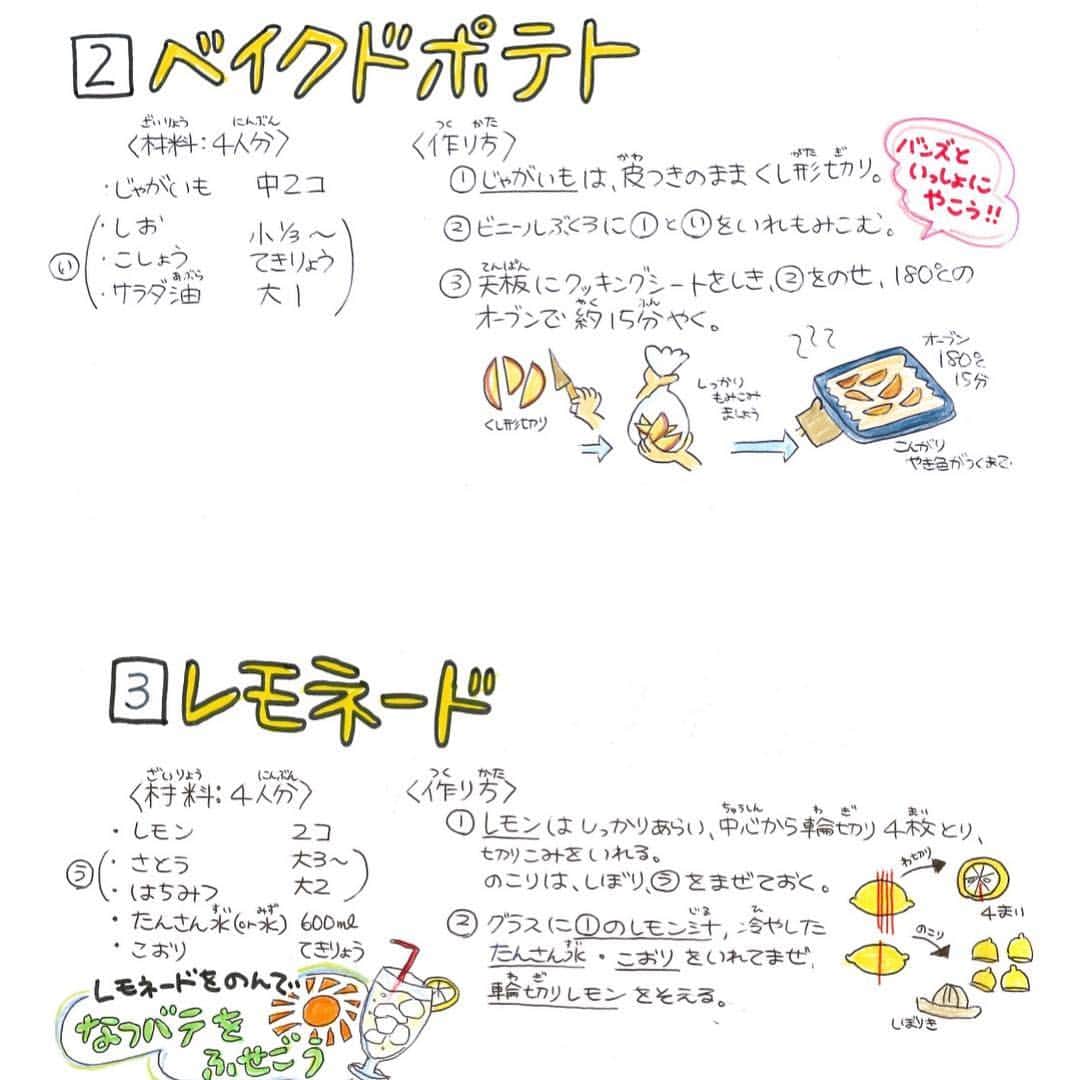 2 ベイクドポテト
ざいりょう にんぶん
〈材料:4人分〉
・じゃがいも 中2コ
い
・しお 小1/3〜
・こしょう てきりょう
あぶら
・サラダ油 大1
つく かた
〈作り方〉
かわ がた ぎ
①じゃがいもは、皮つきのままくし形切り。
②ビニールぶくろに①といをいれもみこむ。
てんぱん
③天板にクッキングシートをしき、②をのせ、180℃の
やく ふん
オーブンで約15分やく。
バンズと
いっしょに
やこう!!
くし形切り
しっかり
もみこみ
ましょう
オーブン
180℃
15分
こんがり
やき色がつくまで
3 レモネード
ざいりょう にんぶん
〈材料:4人分〉
・レモン 2コ
う
・さとう 大3〜
・はちみつ 大2
すい みず
・たんさん水(or水) 600ml
・こおり てきりょう
つく かた
〈作り方〉
ちゅうしん わ ぎ まい
①レモンはしっかりあらい、中心から輪切り4枚とり、
切りこみをいれる。
のこりは、しぼり、うをまぜておく。
じる ひ
②グラスに①のレモン汁、冷やした
すい
たんさん水・こおりをいれてまぜ、
わ ぎ
輪切りレモンをそえる。
わ切り
4まい
のこり
しぼりき
レモネードをのんで
なつバテを
ふせごう